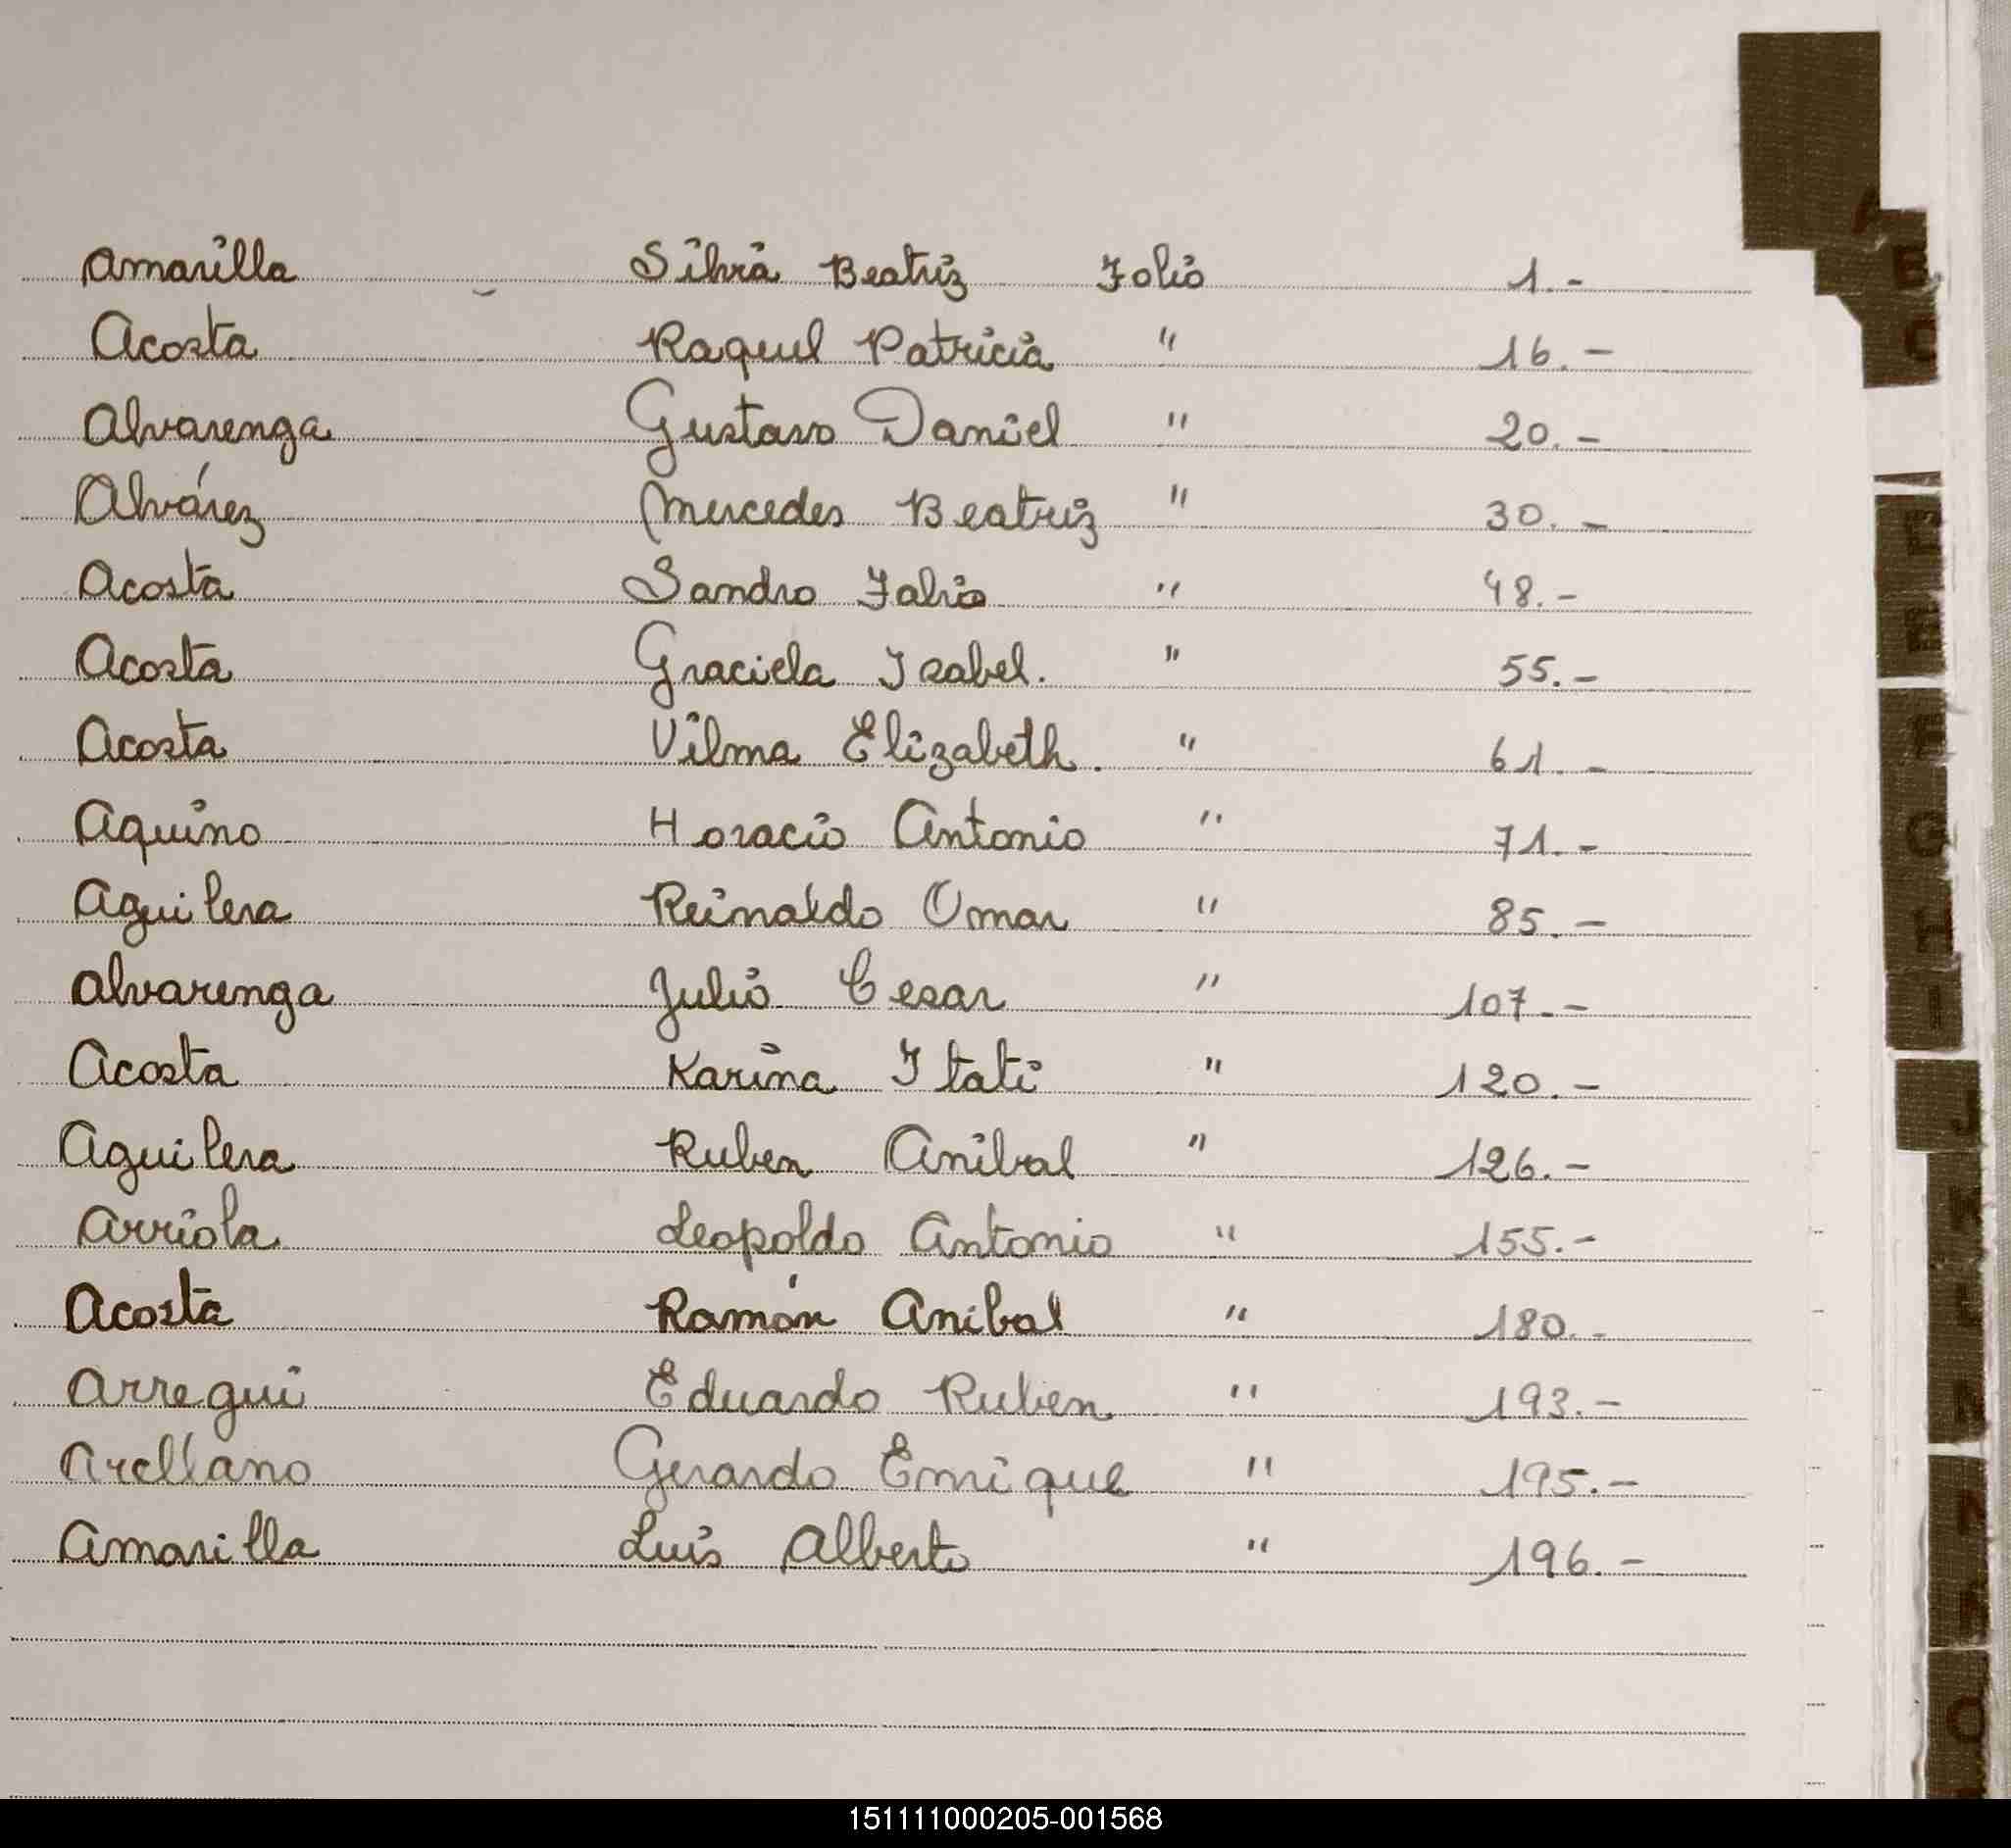 Amarilla Silvia Beatriz Folio 1.-
Acosta Raquel Patricia " 16.-
Alvarenga Gustavo Daniel " 20.-
Alvárez Mercedes Beatriz " 30.-
Acosta Sandro Fabio " 48.-
Acosta Graciela Isabel. " 55.-
Acosta Vilma Elizabeth. " 61.-
Aquino Horacio Antonio " 71.-
Aguilera Reinaldo Omar " 85.-
Alvarenga Julio Cesar " 107.-
Acosta Karina Itati " 120.-
Aguilera Ruben Anibal " 126.-
Arriola Leopoldo Antonio " 155.-
Acosta Ramón Anibal " 180.-
Arregui Eduardo Ruben " 193.-
Arellano Gerardo Enrique " 195.-
Amarilla Luis Alberto " 196.-
151111000205-001568